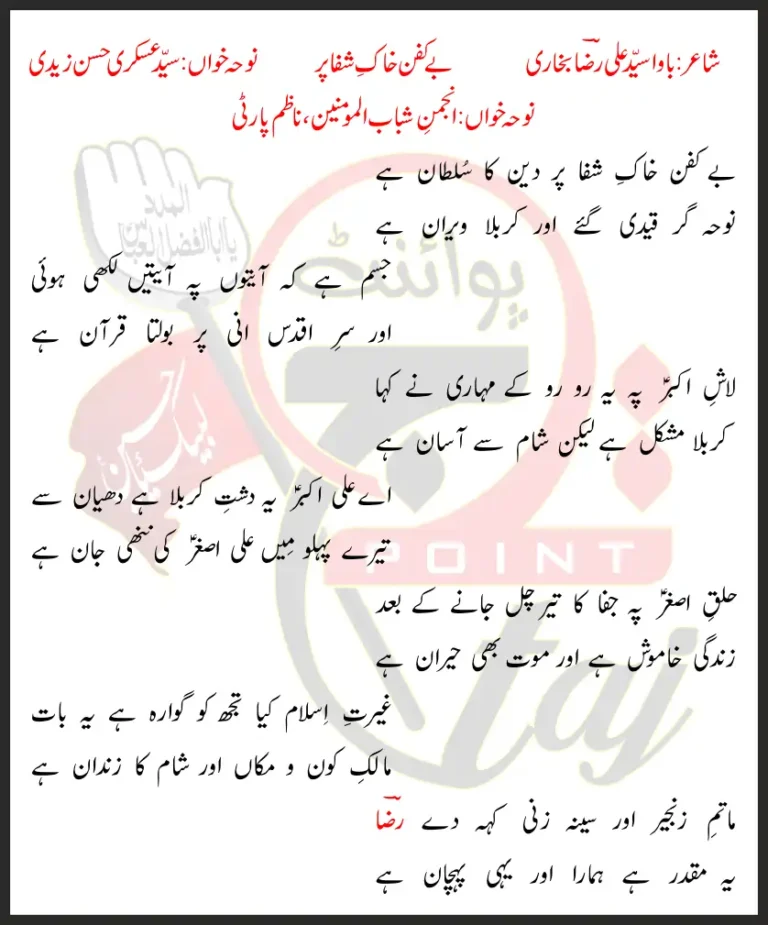 شاعر: باوا سیّد علی رضاؔ بخاری بے کفن خاکِ شفا پر نوحہ خواں: سیّد عسکری حسن زیدی
نوحہ خواں: انجمنِ شباب المومنین، ناظم پارٹی
بے کفن خاکِ شفا پر دین کا سُلطان ہے
نوحہ گر قیدی گئے اور کربلا ویران ہے
جسم ہے کہ آیتوں پہ آیتیں لکھی ہوئی
اور سرِ اقدس انی پر بولتا قرآن ہے
لاشِ اکبرؑ پہ یہ رو رو کے مہاری نے کہا
کربلا مشکل ہے لیکن شام سے آسان ہے
اے علی اکبرؑ یہ دشتِ کربلا ہے دھیان سے
تیرے پہلو مِیں علی اصغرؑ کی ننھی جان ہے
حلقِ اصغرؑ پہ جفا کا تیر چل جانے کے بعد
زندگی خاموش ہے اور موت بھی حیران ہے
غیرتِ اِسلام کیا تجھ کو گوارہ ہے یہ بات
مالکِ کون و مکاں اور شام کا زندان ہے
ماتمِ زنجیر اور سینہ زنی کہہ دے رضاؔ
یہ مقدر ہے ہمارا اور یہی پہچان ہے
المدد
یا ابا الفضل العباس
لبیک یا حسین
پوائنٹ
POINT
taj